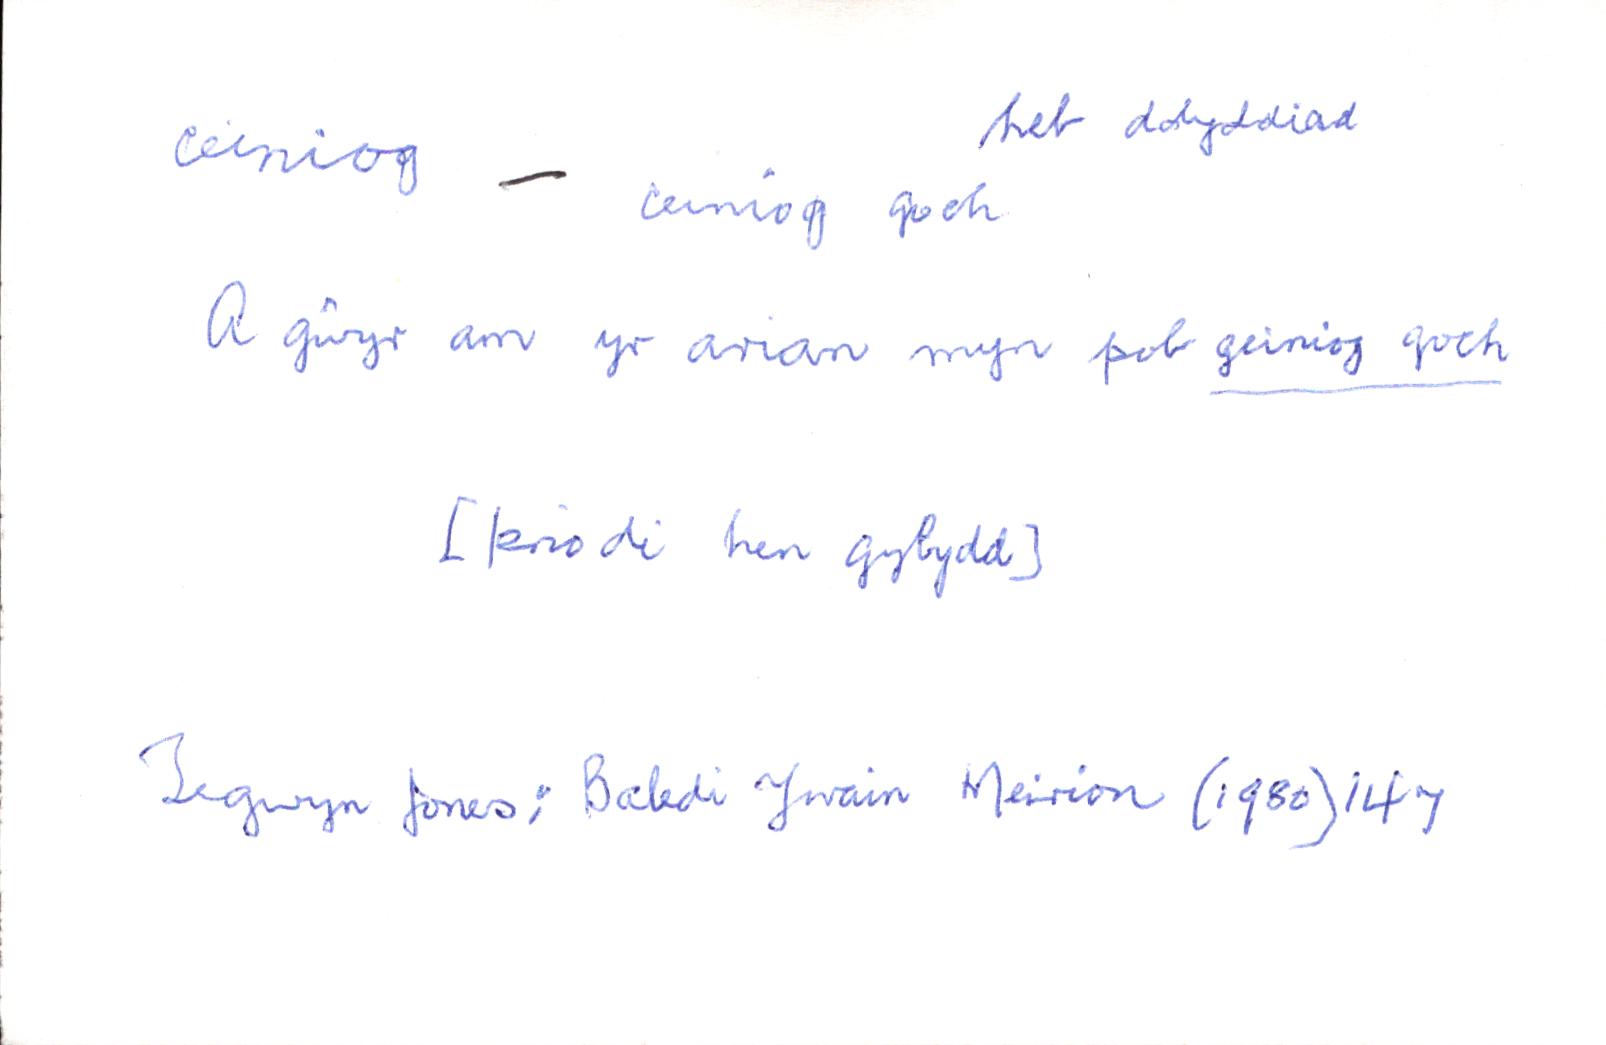 heb ddyddiad
ceiniog — ceiniog goch
A gŵyr am yr arian myn pob geiniog goch
[priodi hen gybydd]
Tegwyn Jones; Baledi Ywain Meirion (1980) 147